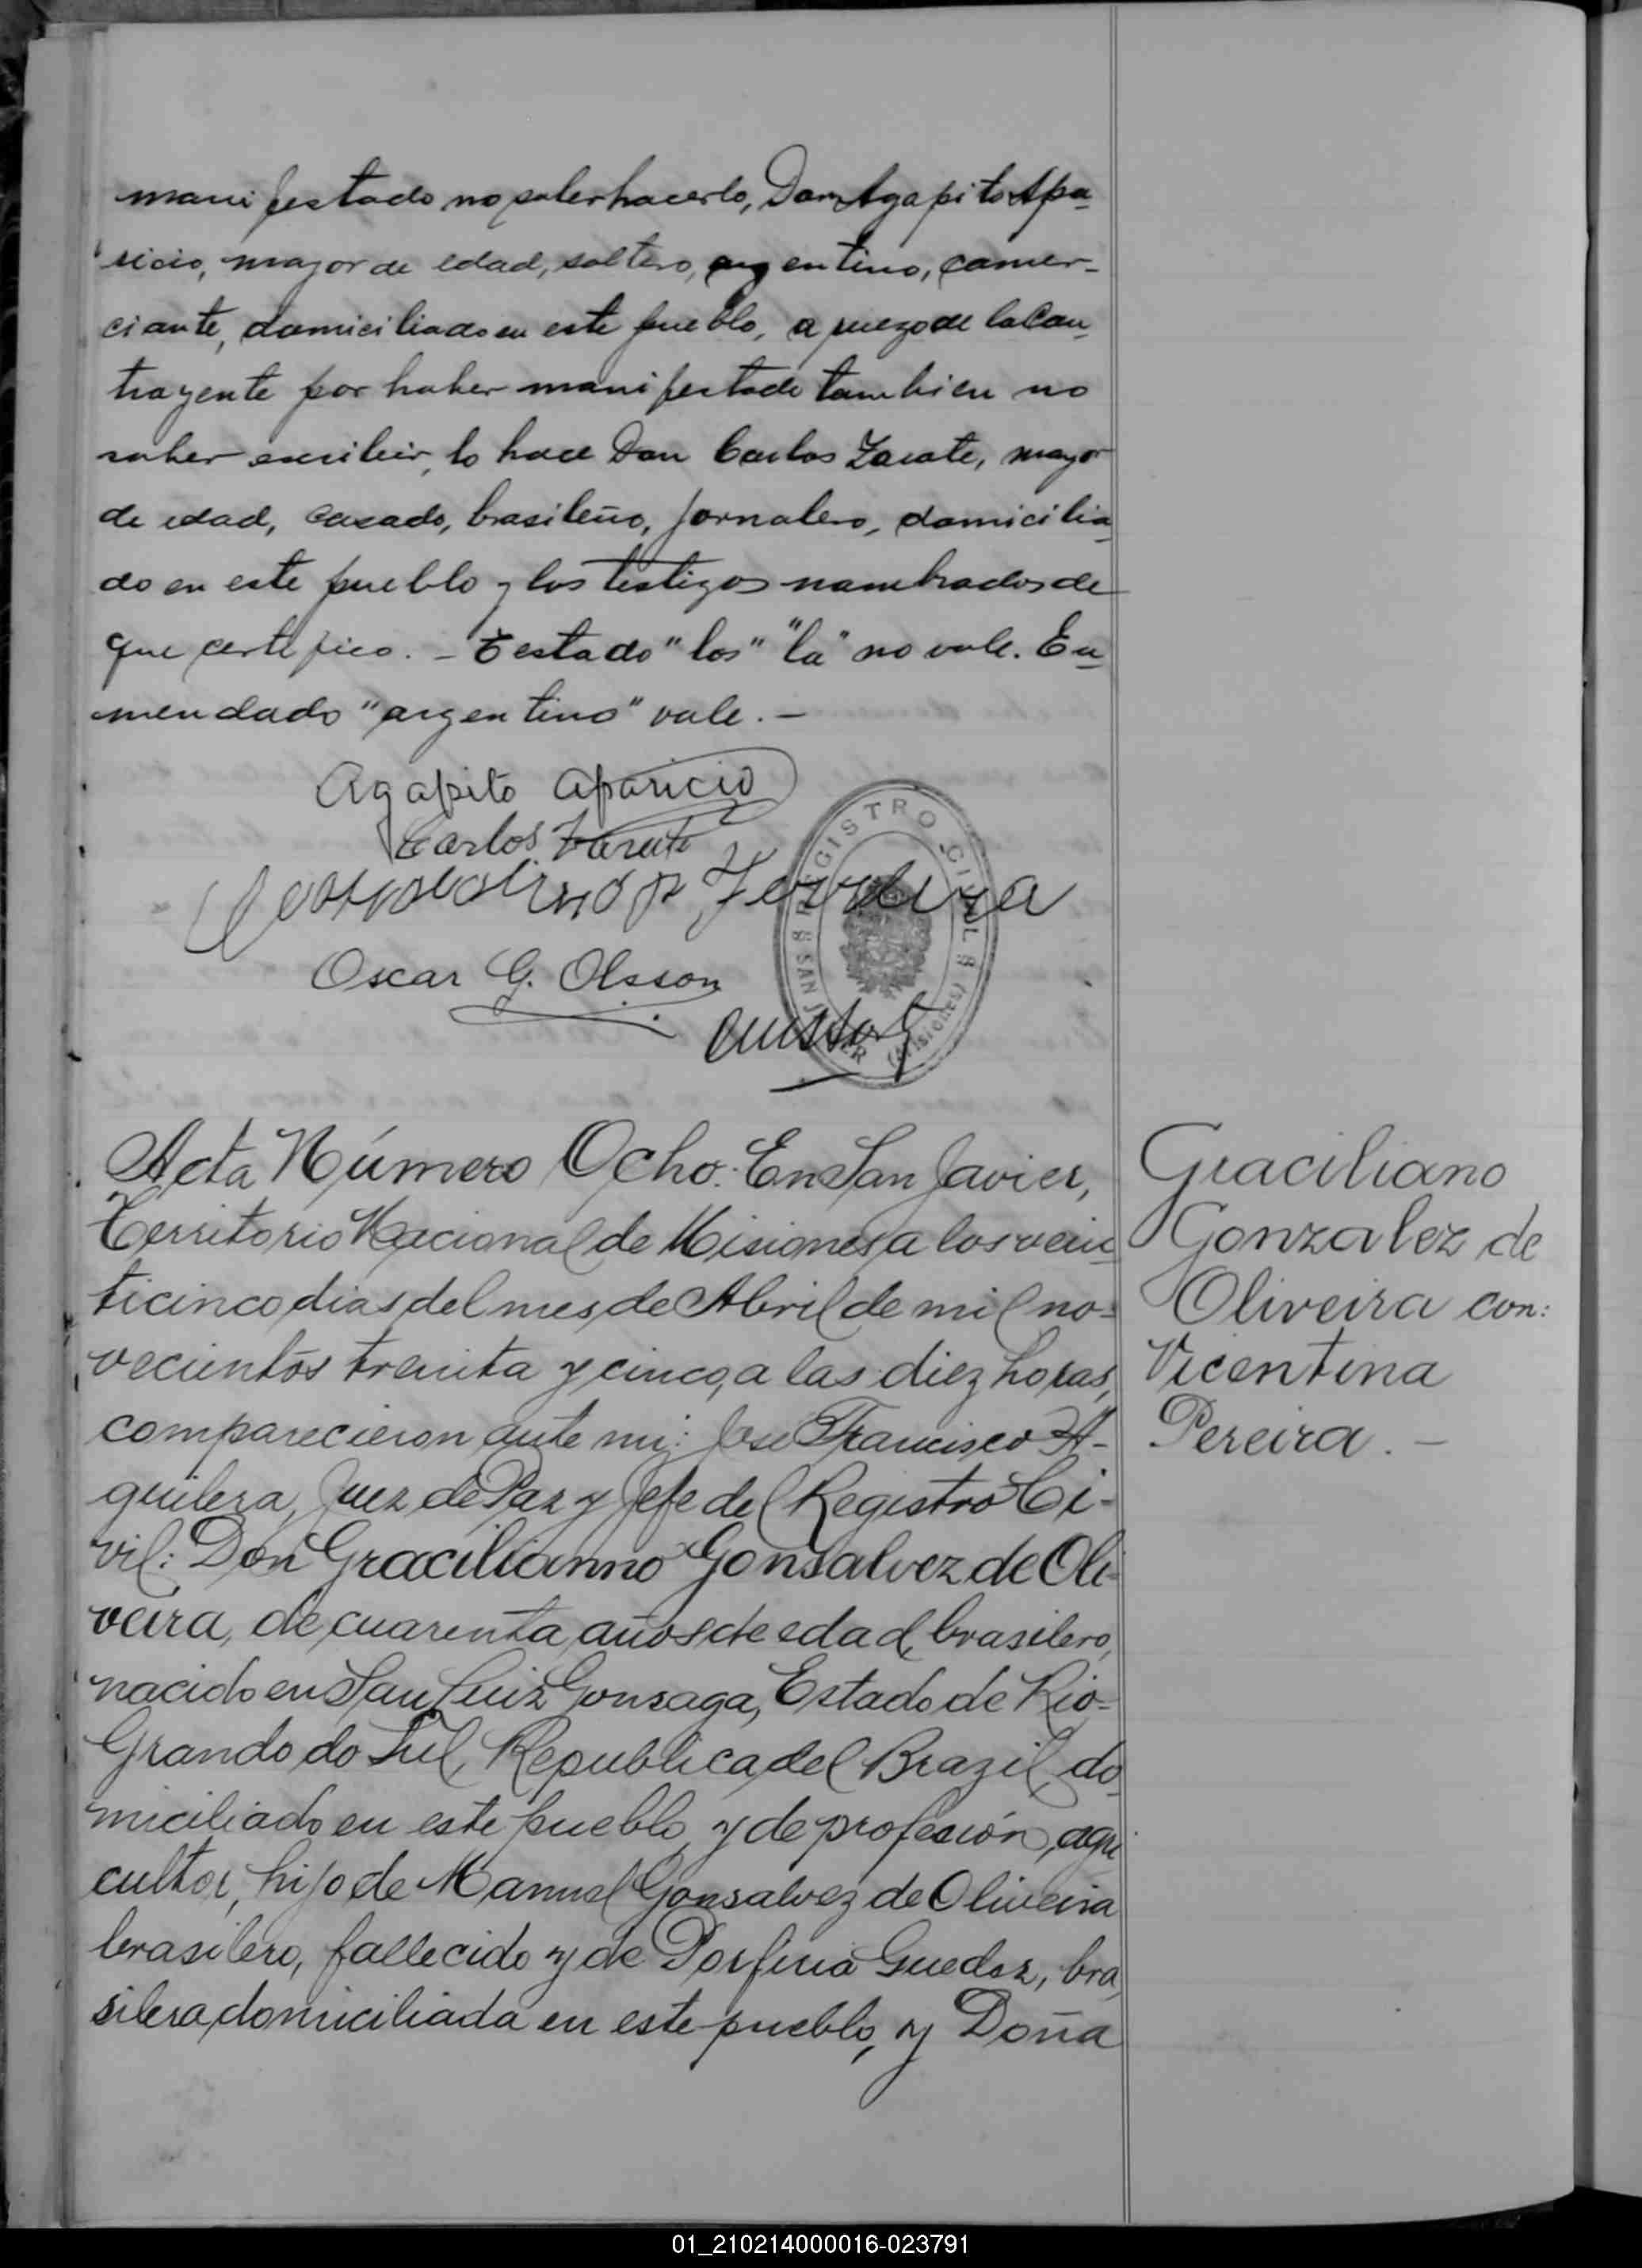 manifestado no saber hacerlo, Don Agapito Apa-
ricio, mayor de edad, soltero, argentino, comer-
ciante, domiciliado en este pueblo, a ruego de la Con-
trayente por haber manifestado tambien no
saber escribir, lo hace Don Carlos Zarate, mayor
de edad, casado, brasileño, jornalero, domicilia-
do en este pueblo y los testigos nombrados de
que certifico. - Testado "los" "la" no vale. En-
mendado "argentino" vale. -
Agapito Aparicio
Carlos Zarate
Oscar G. Olsson
REGISTRO CIVIL
SAN JAVIER (MISIONES)
Acta Número Ocho: En San Javier,
Territorio Nacional de Misiones, a los vein-
ticinco dias del mes de Abril de mil no-
vecientos treinta y cinco, a las diez horas,
comparecieron ante mi: Jose Francisco A-
guilera, Juez de Paz y Jefe del Registro Ci-
vil: Don Gracilianno Gonsalvez de Oli-
veira, de cuarenta años de edad, brasilero,
nacido en San Luiz Gonzaga, Estado de Rio-
Grando do Sul, Republica del Brazil, do-
miciliado en este pueblo, y de profesión, agri
cultor, hijo de Manuel Gonsalvez de Oliveira
brasilero, fallecido y de Porfiria Guedez, bra
silera, domiciliada en este pueblo, y Doña
Graciliano
Gonzalez de
Oliveira con:
Vicentina
Pereira. -
01_210214000016-023791